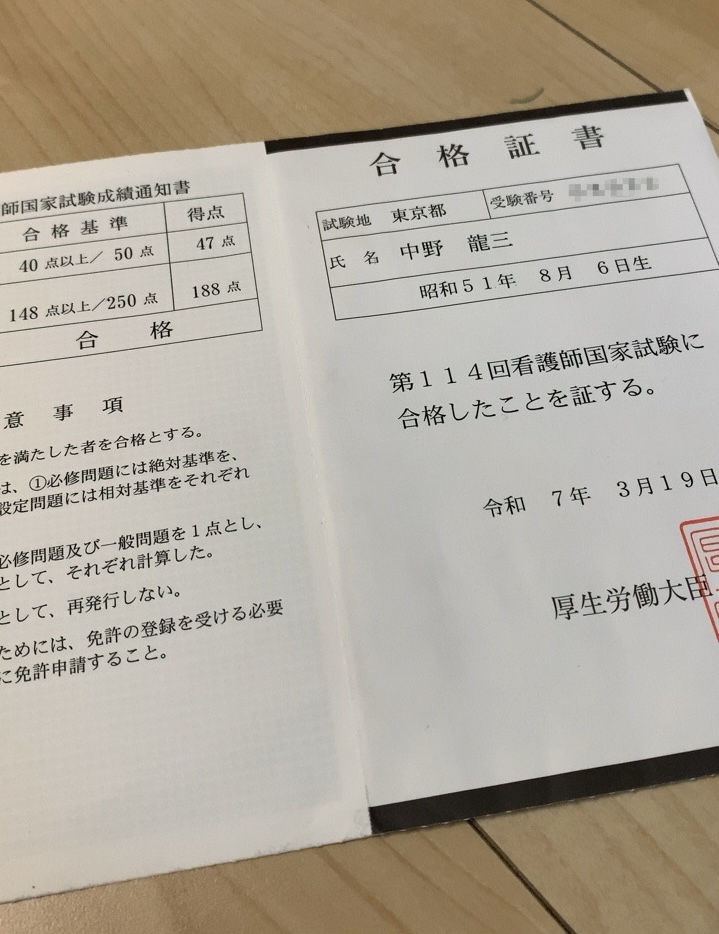 師国家試験成績通知書
合格基準 得点
40点以上/50点 47点
148点以上/250点 188点
合格
意事項
を満たした者を合格とする。
は、①必修問題には絶対基準を、
設定問題には相対基準をそれぞれ
必修問題及び一般問題を1点とし、
として、それぞれ計算した。
として、再発行しない。
ためには、免許の登録を受ける必要
に免許申請すること。
合格証書
試験地 東京都 受験番号
氏名 中野 龍三
昭和51年 8月 6日生
第114回看護師国家試験に
合格したことを証する。
令和 7年 3月19日
厚生労働大臣